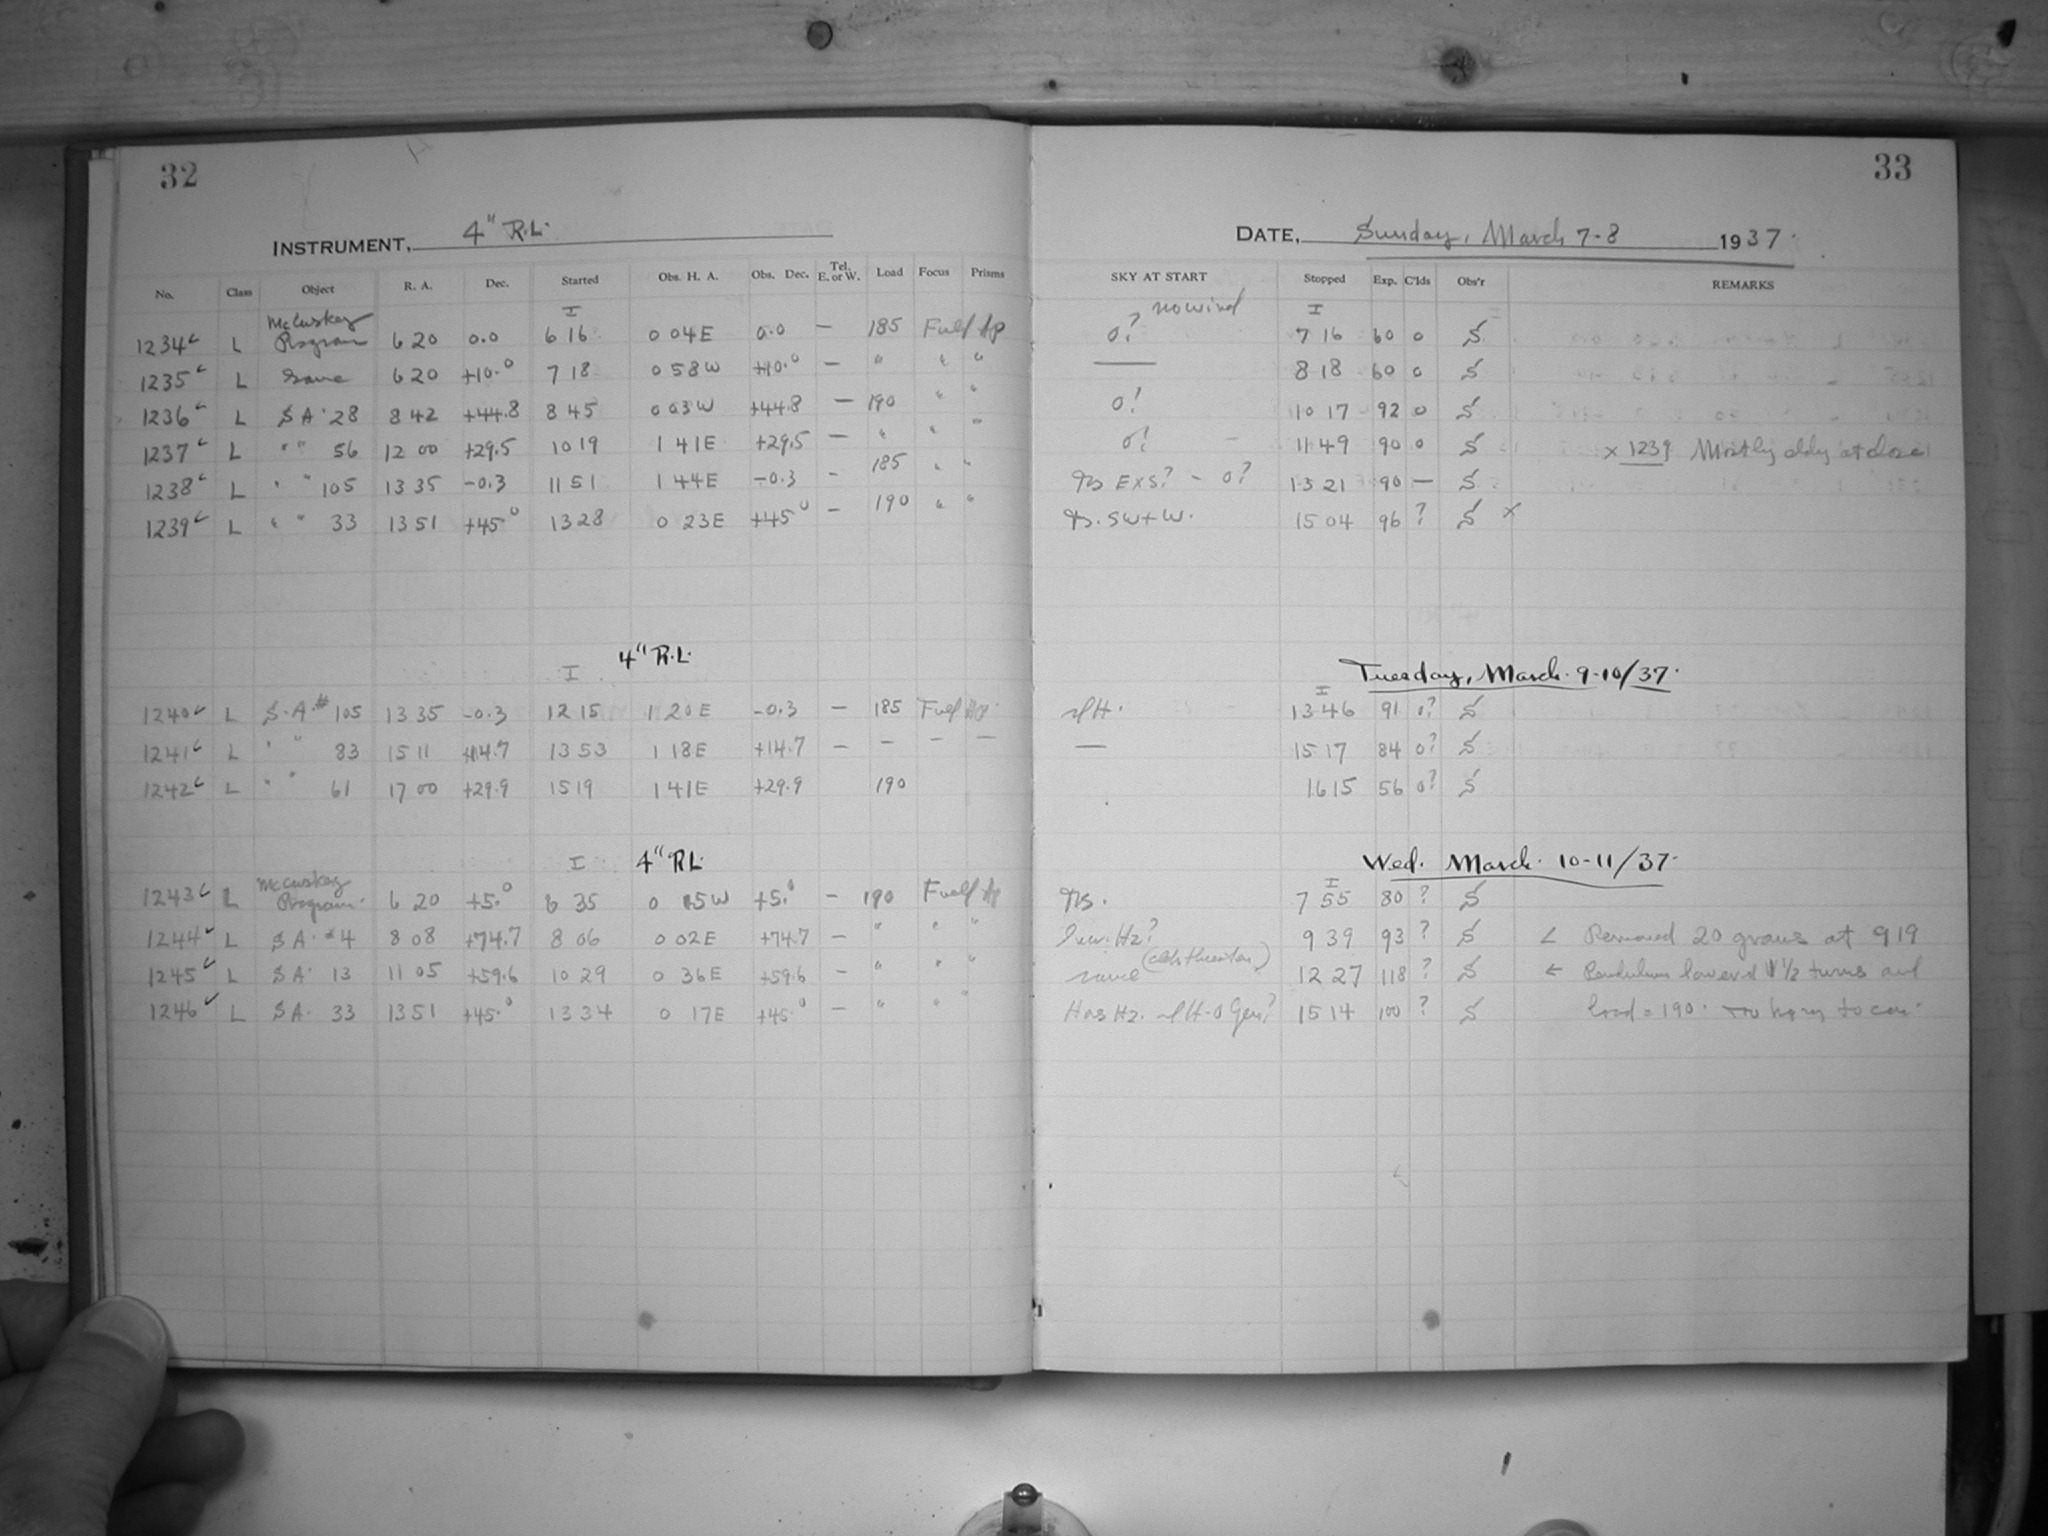 32
INSTRUMENT, 4" R.L.
No. Class Object R. A. Dec. Started Obs. H. A. Obs. Dec. Tel. E. or W. Load Focus Prisms
I
McCuskey
1234 L Program 6 20 0.0 6 16 0 04E 0.0 — 185 Full Ap
1235 L Same 6 20 +10.0 7 18 0 58W +10.0 — " " "
1236 L S A 28 8 42 +44.8 8 45 0 03W +44.8 — 190 " "
1237 L " " 56 12 00 +29.5 10 19 1 41E +29.5 — " " "
1238 L " " 105 13 35 -0.3 11 51 1 44E -0.3 — 185 " "
1239 L " " 33 13 51 +45° 13 28 0 23E +45° — 190 " "
4" R.L.
I
1240 L S.A.# 105 13 35 -0.3 12 15 1 20E -0.3 — 185 Full Ap
1241 L " " 83 15 11 +14.7 13 53 1 18E +14.7 — — — —
1242 L " " 61 17 00 +29.9 15 19 1 41E +29.9 190
I 4" RL.
McCuskey
1243 L Program. 6 20 +5.° 6 35 0 15W +5.° — 190 Full Ap
1244 L S A. #4 8 08 +74.7 8 06 0 02E +74.7 — " " "
1245 L SA. 13 11 05 +59.6 10 29 0 36E +59.6 — " " "
1246 L SA. 33 13 51 +45.° 13 34 0 17E +45° — " " "
33
DATE, Sunday, March 7-8 1937.
SKY AT START Stopped Exp. C'lds Obs'r REMARKS
no wind I
0? 7 16 60 0 S
— 8 18 60 0 S
0! 10 17 92 0 S
0! 11 49 90 0 S x 1239 Mostly cldy at close
EXS? - 0? 13 21 90 — S
SW+W. 15 04 96 ? S x
Tuesday, March. 9-10/37.
I
H. 13 46 91 0? S
— 15 17 84 0? S
16 15 56 0? S
Wed. March. 10-11/37.
I
7 55 80 ? S
Hz? 9 39 93 ? S Removed 20 grams at 919
same 12 27 118 ? S ← Pendulum lowered 1 1/2 turns and
Has Hz. 15 14 100 ? S load = 190.